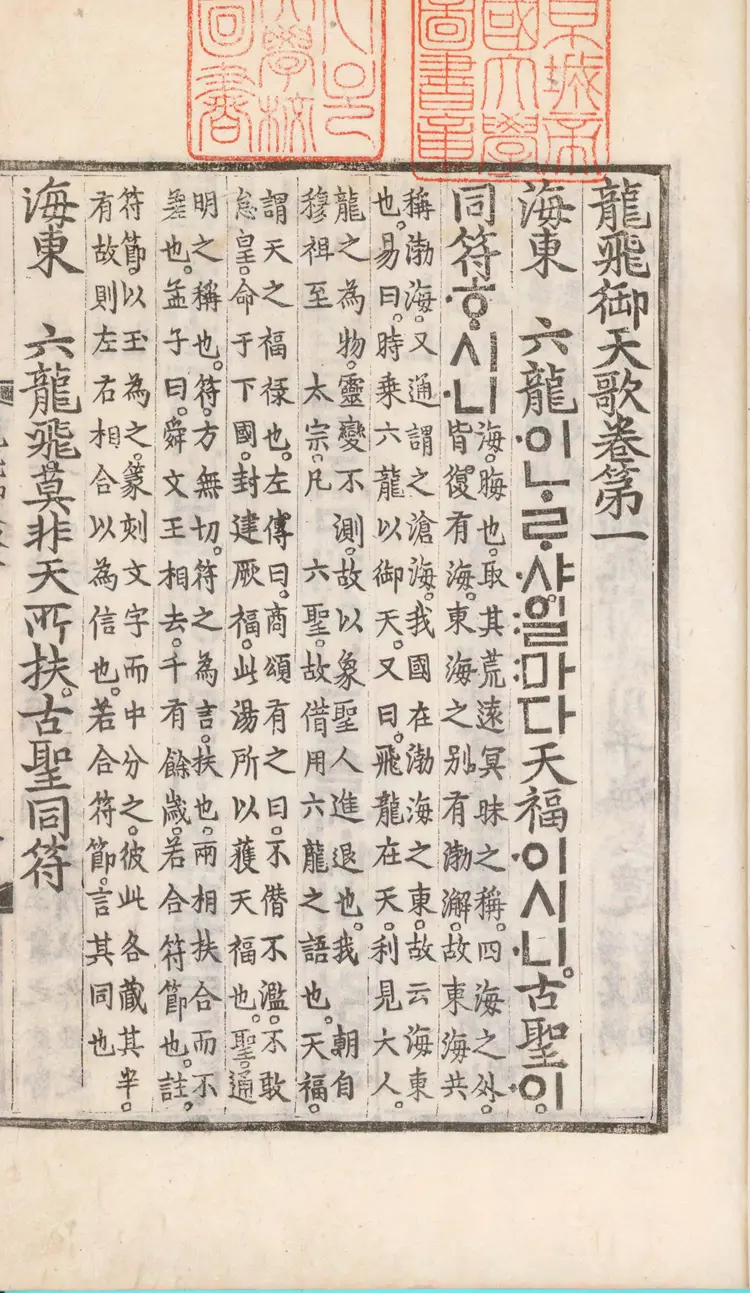 京城帝
國大學
圖書章
大學校
圖書
龍飛御天歌卷第一
海東 六龍·이ᄂᆞᄅᆞ·샤:일:마다天福·이시·니。古聖·이。
同符·ᄒᆞ·시·니
海。晦也。取其荒遠冥昧之稱。四海之外。
皆復有海。東海之別有渤澥。故東海共
稱渤海。又通謂之滄海。我國在渤海之東。故云海東
也。易曰。時乘六龍以御天。又曰。飛龍在天。利見大人。
龍之為物。靈變不測。故以象聖人進退也。我 朝自
穆祖至 太宗。凡 六聖。故借用六龍之語也。天福。
謂天之福祿也。左傳曰。商頌有之曰。不僭不濫。不敢
怠皇。命于下國。封建厥福。此湯所以獲天福也。聖。通
明之稱也。符。方無切。符之為言。扶也。兩相扶合而不
差也。孟子曰。舜文王相去。千有餘歲。若合符節也。註。
符節。以玉為之。篆刻文字而中分之。彼此各藏其半。
有故則左右相合以為信也。若合符節。言其同也
海東 六龍飛莫非天所扶。古聖同符